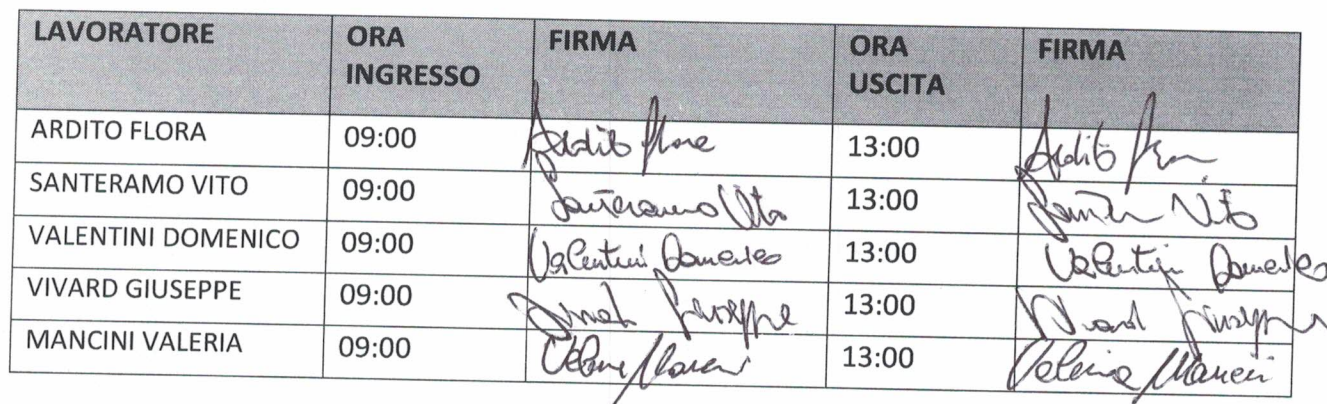 LAVORATORE ORA INGRESSO FIRMA ORA USCITA FIRMA
ARDITO FLORA 09:00 Ardito Flora 13:00 Ardito
SANTERAMO VITO 09:00 Santeramo Vito 13:00 Vito
VALENTINI DOMENICO 09:00 Valentini Domenico 13:00 Valentini Domenico
VIVARD GIUSEPPE 09:00 Giuseppe 13:00 Vivard Giuseppe
MANCINI VALERIA 09:00 Valeria Mancini 13:00 Valeria Mancini